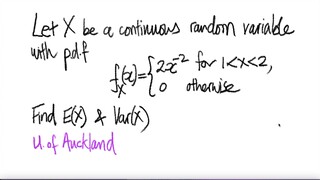 Let X be a continuous random variable
with p.d.f
f_X(x) = { 2x⁻² for 1<x<2,
0 otherwise
Find E(X) & Var(X)
U. of Auckland